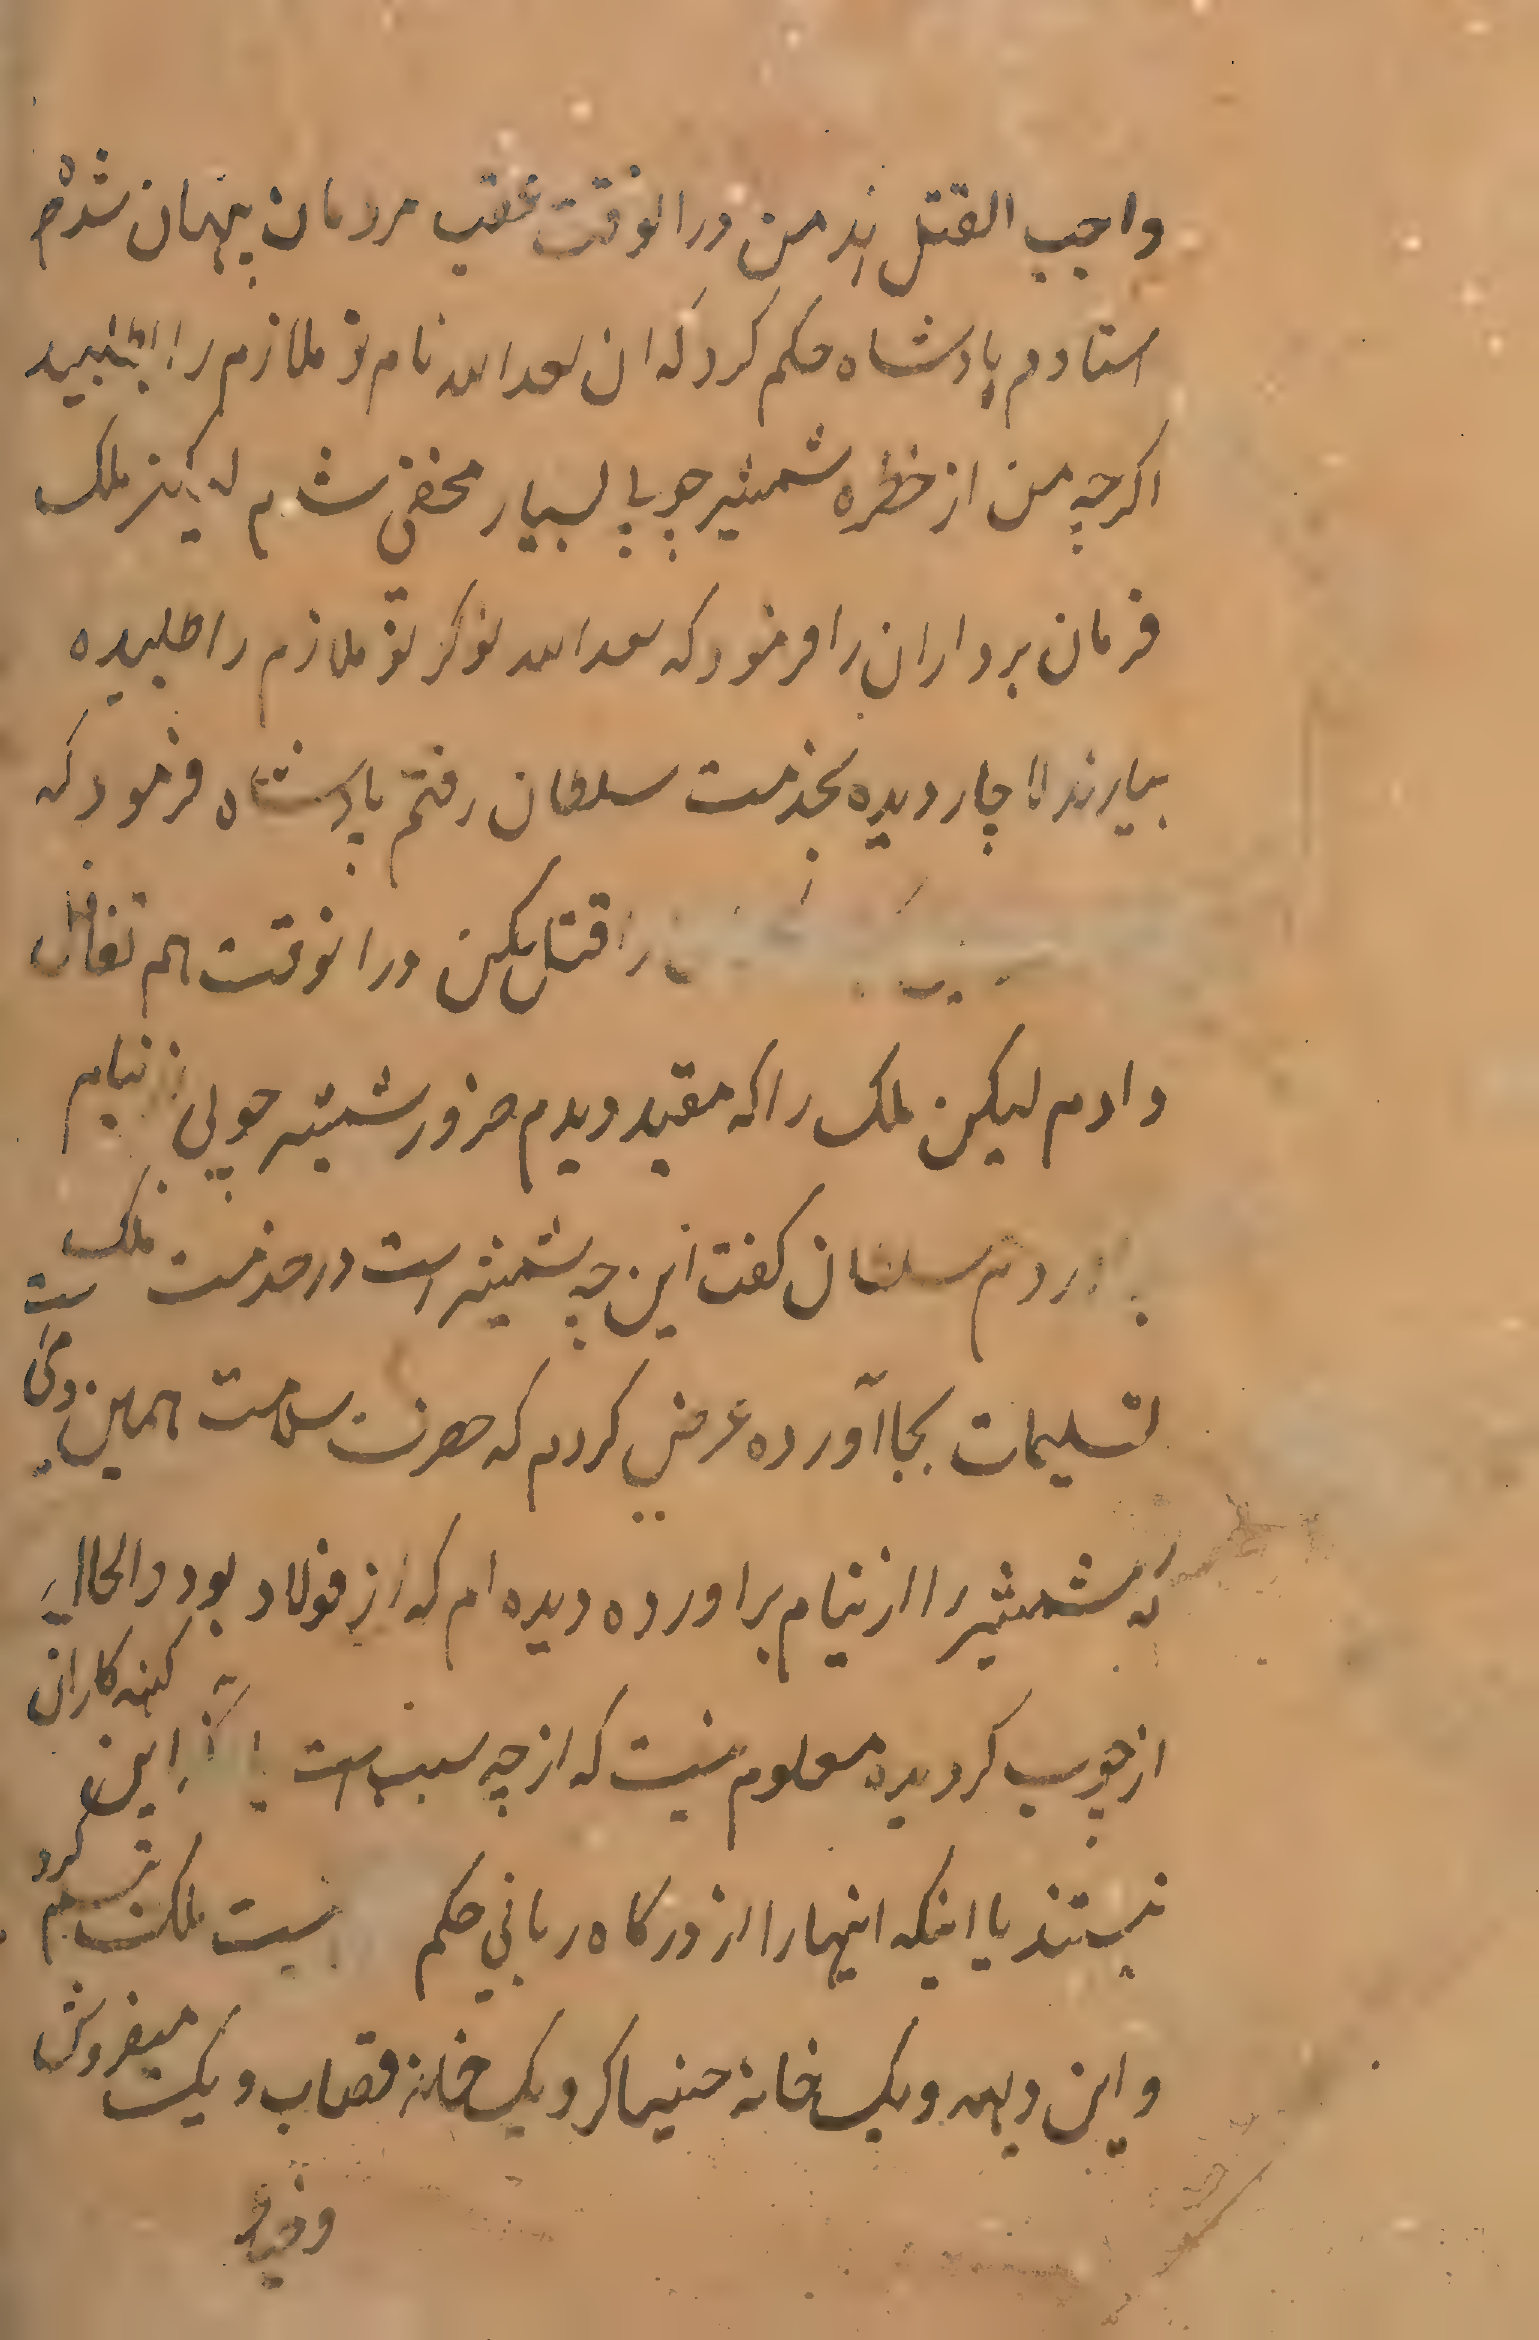 واجب القتل اند من درالوقت عقب مردمان پنهان شده
استادم پادشاه حکم کرد که ان سعد الله نام نو ملازم را بطلبید
اکرچه من از خطره شمشیر چوبی بسیار مخفی شدم لیکن ملک
فرمان برداران را فرمود که سعد الله نوکر نو ملازم را طلبیده
بیارند لاچار دیده بخدمت سلطان رفتم پادشاه فرمود که
را قتل بکن درانوقت هم تغافل
دادم لیکن ملک را که مقید دیدم ضرور شمشیر چوبی از نیام
بر اوردم سلطان کفت این چه شمشیر است در خدمت ملک
تسلیمات بجا آورده عرض کردم که حضرت سلامت همین
که شمشیر را از نیام براورده دیده ام که از فولاد بود والحال
از چوب کردیده معلوم نیست که از چه سبب است یا این کنه کاران
نیستند یا اینکه اینها را از درکاه ربانی حکم نیست ملک تبسم کرد
و این دیهه و یک خانهٔ خنیاکر و یک خانهٔ قصاب و یک میفروش